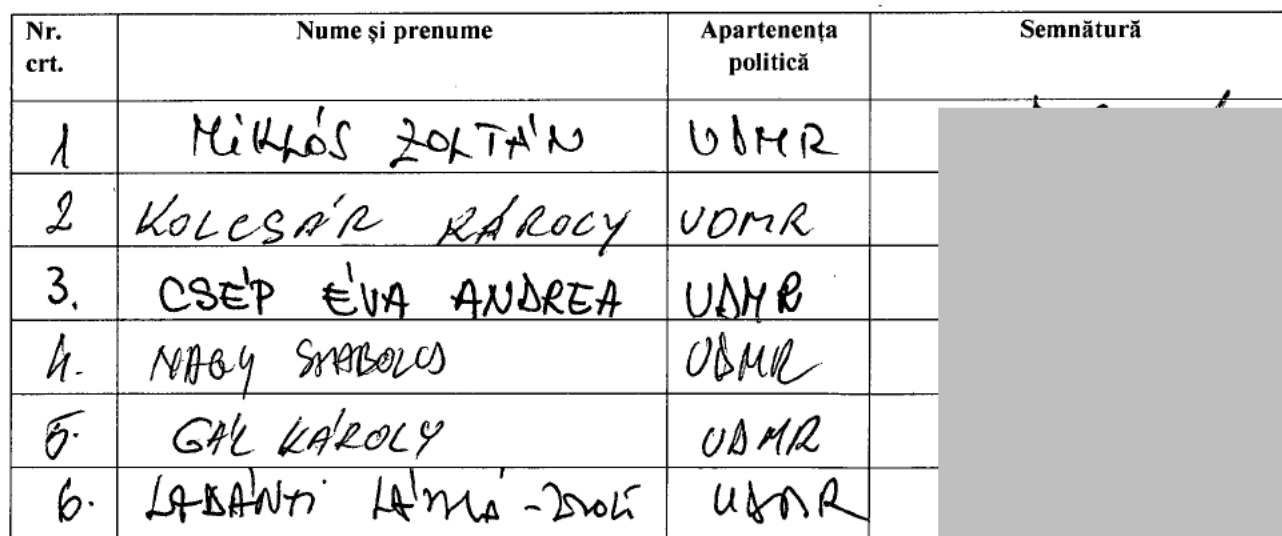 Nr. crt. Nume și prenume Apartenența politică Semnătură
1 MIKLÓS ZOLTÁN UDMR
2 KOLCSÁR KÁROLY UDMR
3. CSÉP ÉVA ANDREA UDMR
4. NAGY SZABOLCS UDMR
5. GÁL KÁROLY UDMR
6. LADÁNYI LÁSZLÓ-ZSOLT UDMR